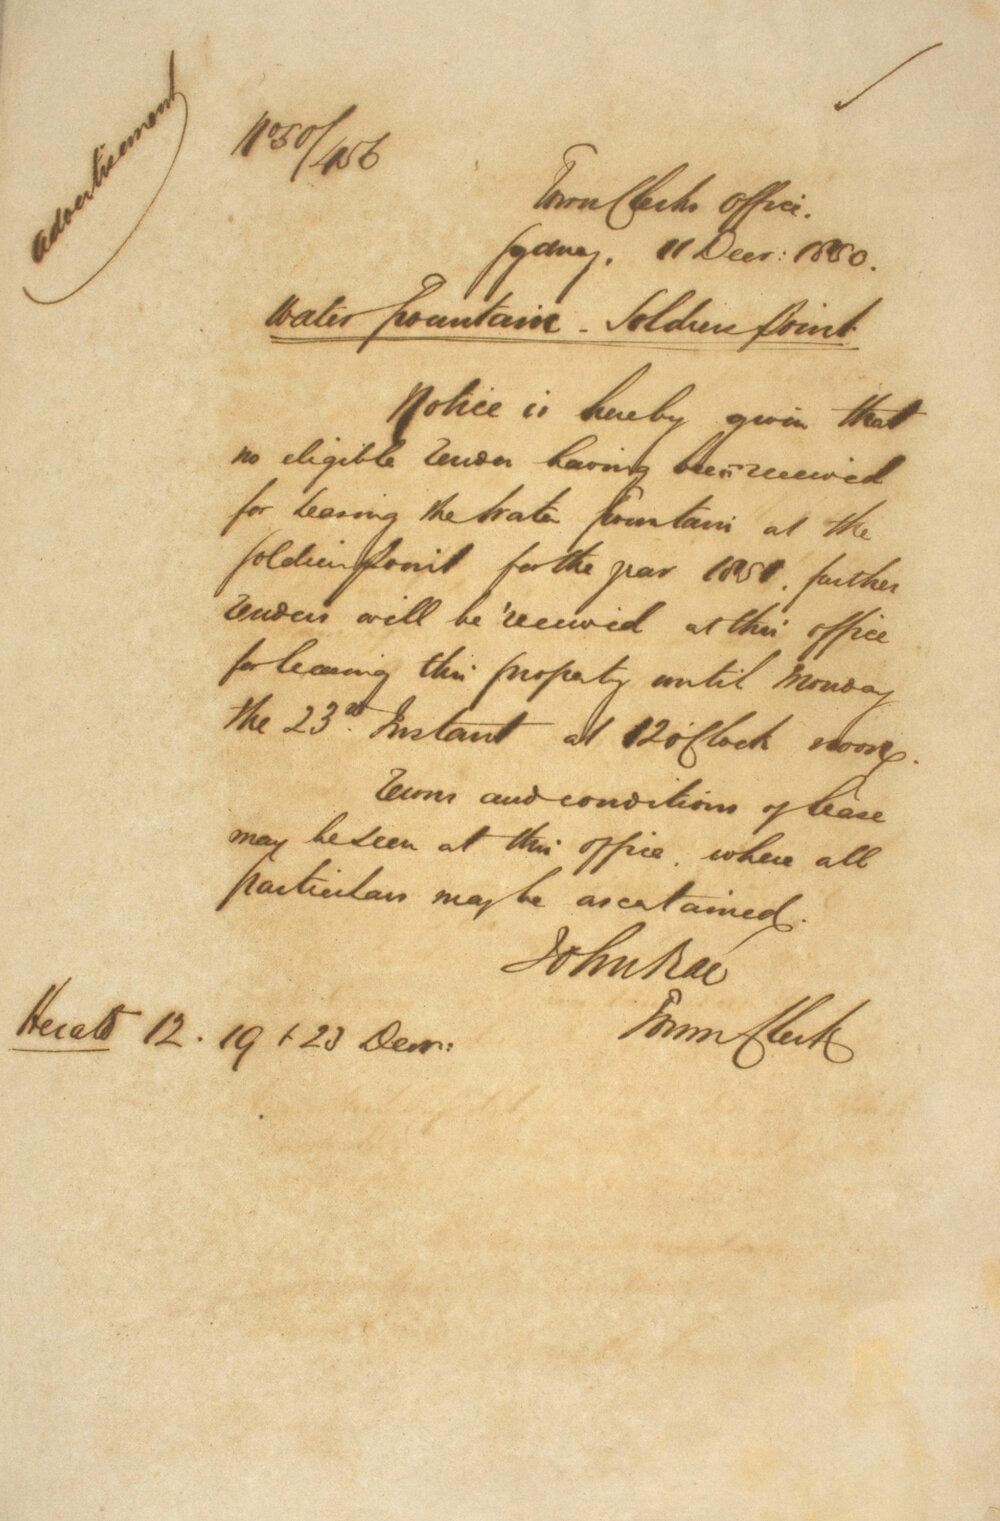 Advertisement
No 50/456
Town Clerks Office.
Sydney. 11 Decr: 1850.
Water Fountain - Soldiers Point
Notice is hereby given that
no eligible Tender having been received
for Leasing the Water Fountain at the
Soldiers Point for the year 1851. further
Tenders will be received at this office
for leasing this property until Monday
the 23rd. Instant at 12 o'Clock noon.
Terms and conditions of Lease
may be seen at this office. where all
particulars may be ascertained.
John Rae
Town Clerk
Herald 12. 19 + 23 Decr: